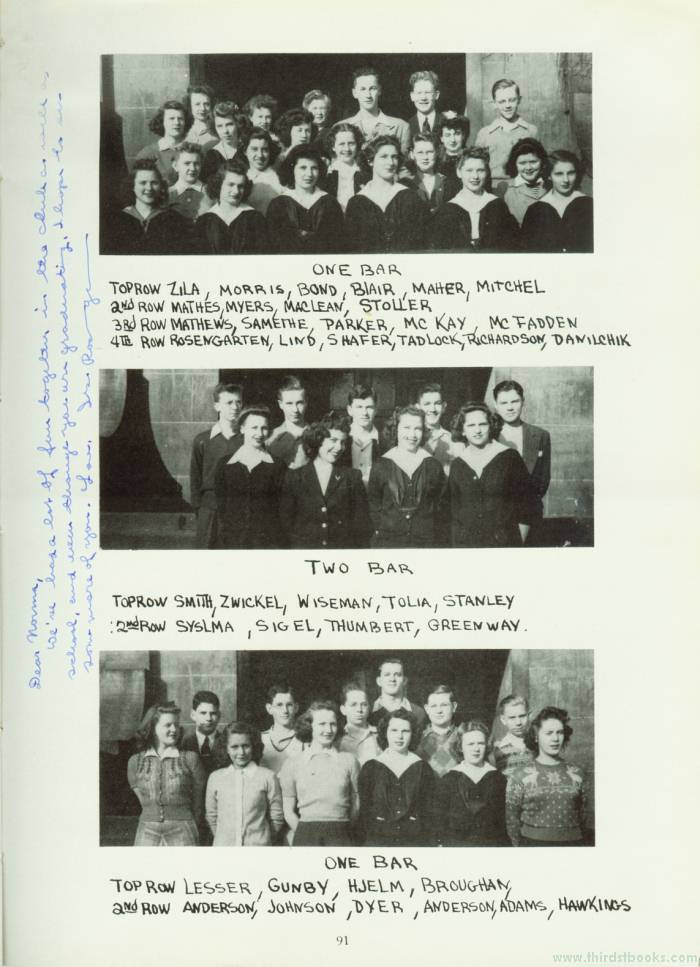 ONE BAR
TOPROW ZILA, MORRIS, BOND, BLAIR, MAHER, MITCHEL
2nd ROW MATHES, MYERS, MACLEAN, STOLLER
3Rd ROW MATHEWS, SAMETHE, PARKER, MCKAY, MCFADDEN
4TH ROW ROSENGARTEN, LIND, SHAFER, TADLOCK, RICHARDSON, DANILCHIK
TWO BAR
TOPROW SMITH, ZWICKEL, WISEMAN, TOLIA, STANLEY
2nd ROW SYSLMA, SIGEL, THUMBERT, GREENWAY.
ONE BAR
TOP ROW LESSER, GUNBY, HJELM, BROUGHAN,
2nd ROW ANDERSON, JOHNSON, DYER, ANDERSON, ADAMS, HAWKINGS
91
Dear Norma,
We've had a lot of fun together in the club as well as
school, and even though you are graduating, I hope to see
some more of you. Love,
www.thirdstbooks.com